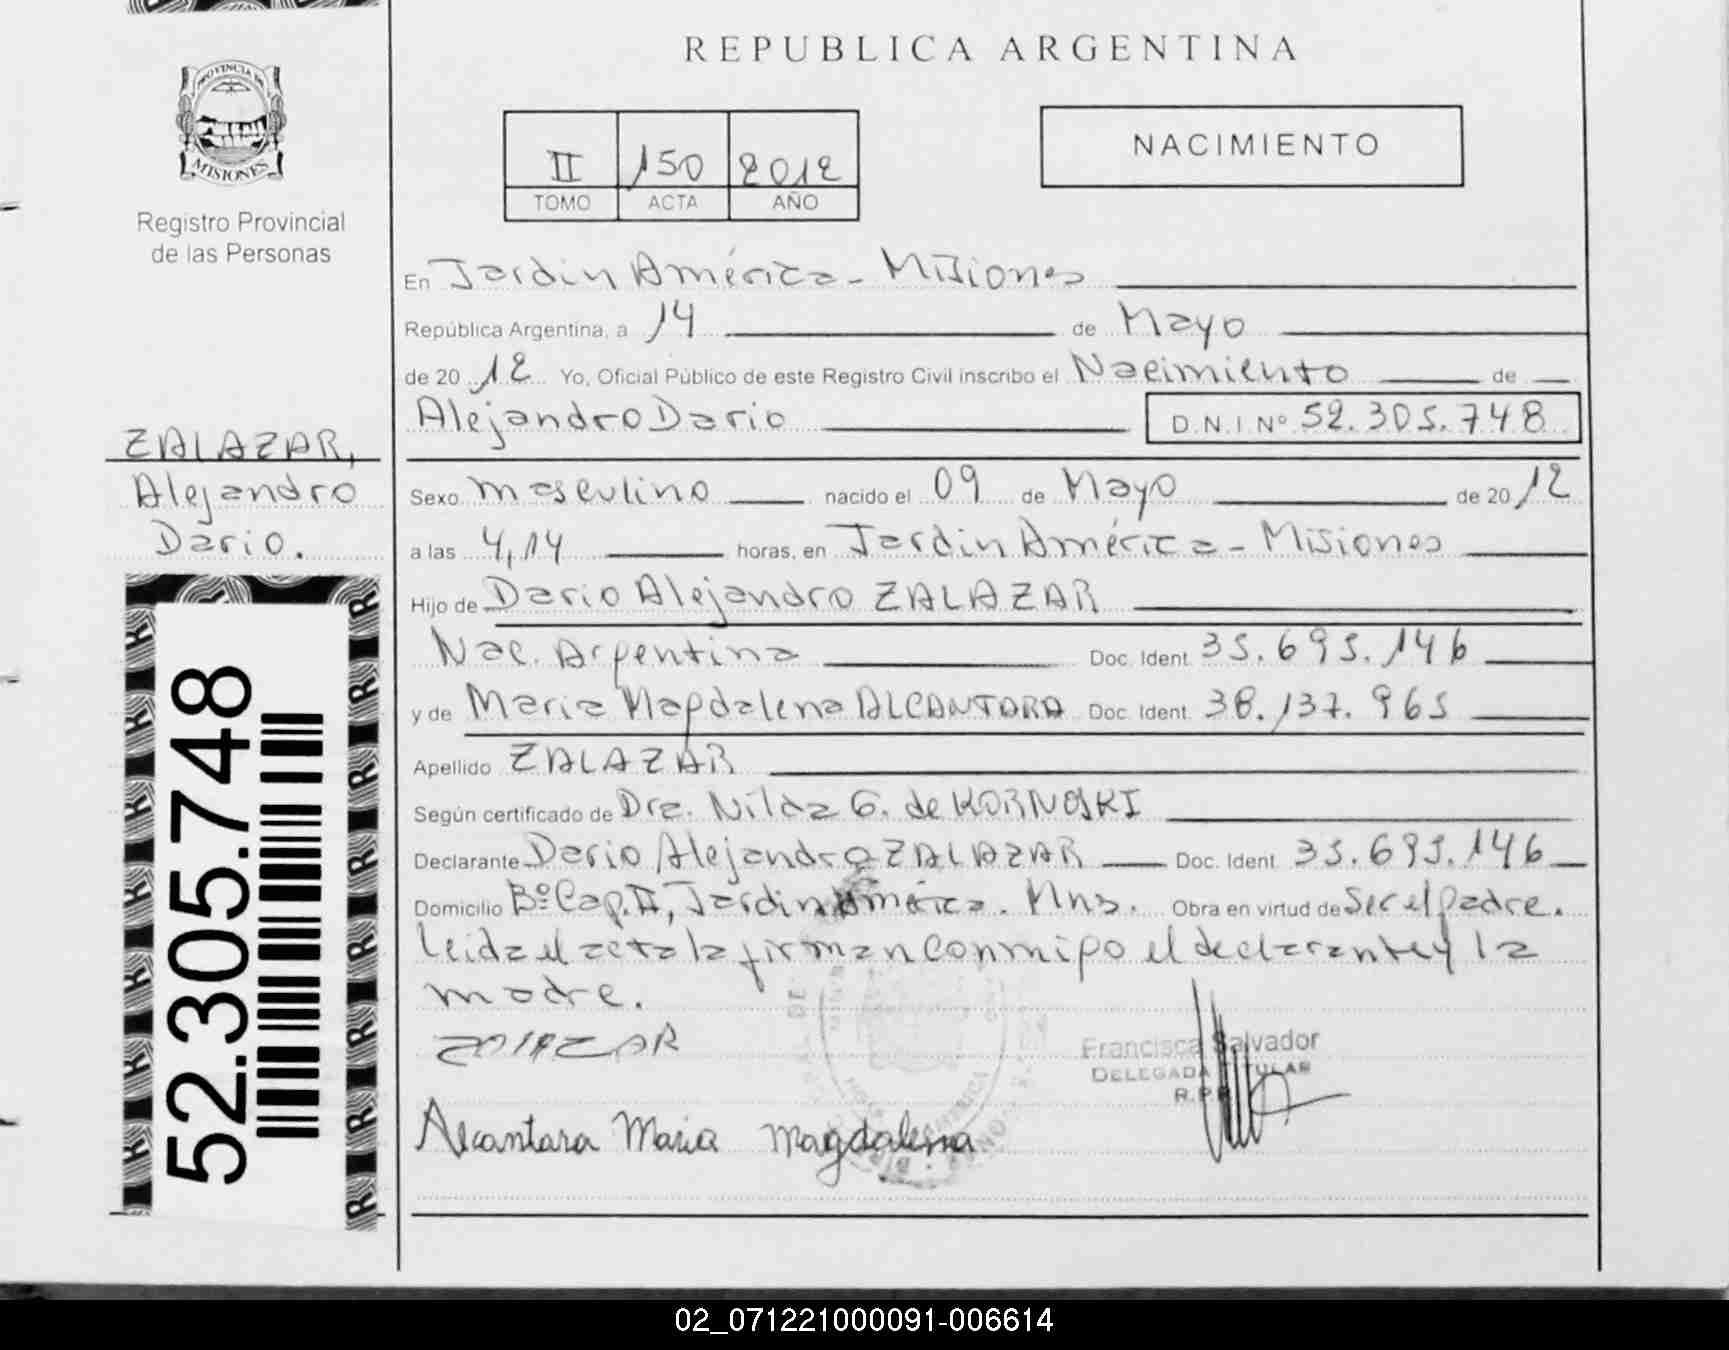 REPUBLICA ARGENTINA
PROVINCIA DE
MISIONES
Registro Provincial
de las Personas
II 150 2012
TOMO ACTA AÑO
NACIMIENTO
En Jardin América - Misiones
República Argentina, a 14 de Mayo
de 20 12 Yo, Oficial Público de este Registro Civil inscribo el Nacimiento de
Alejandro Dario D.N.I. Nº 52.305.748
ZALAZAR,
Alejandro
Dario.
Sexo masculino nacido el 09 de Mayo de 20 12
a las 4,14 horas, en Jardin América - Misiones
Hijo de Dario Alejandro ZALAZAR
Nac. Argentina Doc. Ident. 35.695.146
y de Maria Magdalena ALCANTARA Doc. Ident. 38.137.965
Apellido ZALAZAR
Según certificado de Dra. Nilda G. de KORNOSKI
Declarante Dario Alejandro ZALAZAR Doc. Ident. 35.695.146
Domicilio Bº Cap. II, Jardin América. Mns. Obra en virtud de Ser el padre.
Leida el acta la firman conmigo el declarante y la
madre.
ZALAZAR
Francisca Salvador
DELEGADA TITULAR
R.P.P.
Alcantara Maria Magdalena
52.305.748
02_071221000091-006614